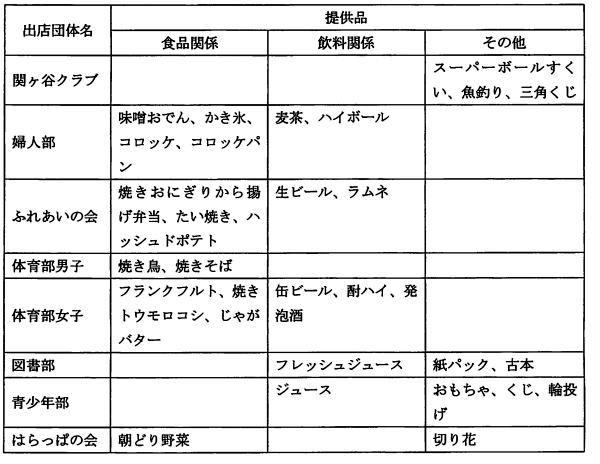 出店団体名
提供品
食品関係
飲料関係
その他
関ヶ谷クラブ
スーパーボールすく
い、魚釣り、三角くじ
婦人部
味噌おでん、かき氷、
コロッケ、コロッケパ
ン
麦茶、ハイボール
ふれあいの会
焼きおにぎりから揚
げ弁当、たい焼き、ハ
ッシュドポテト
生ビール、ラムネ
体育部男子
焼き鳥、焼きそば
体育部女子
フランクフルト、焼き
トウモロコシ、じゃが
バター
缶ビール、酎ハイ、発
泡酒
図書部
フレッシュジュース
紙パック、古本
青少年部
ジュース
おもちゃ、くじ、輪投
げ
はらっぱの会
朝どり野菜
切り花